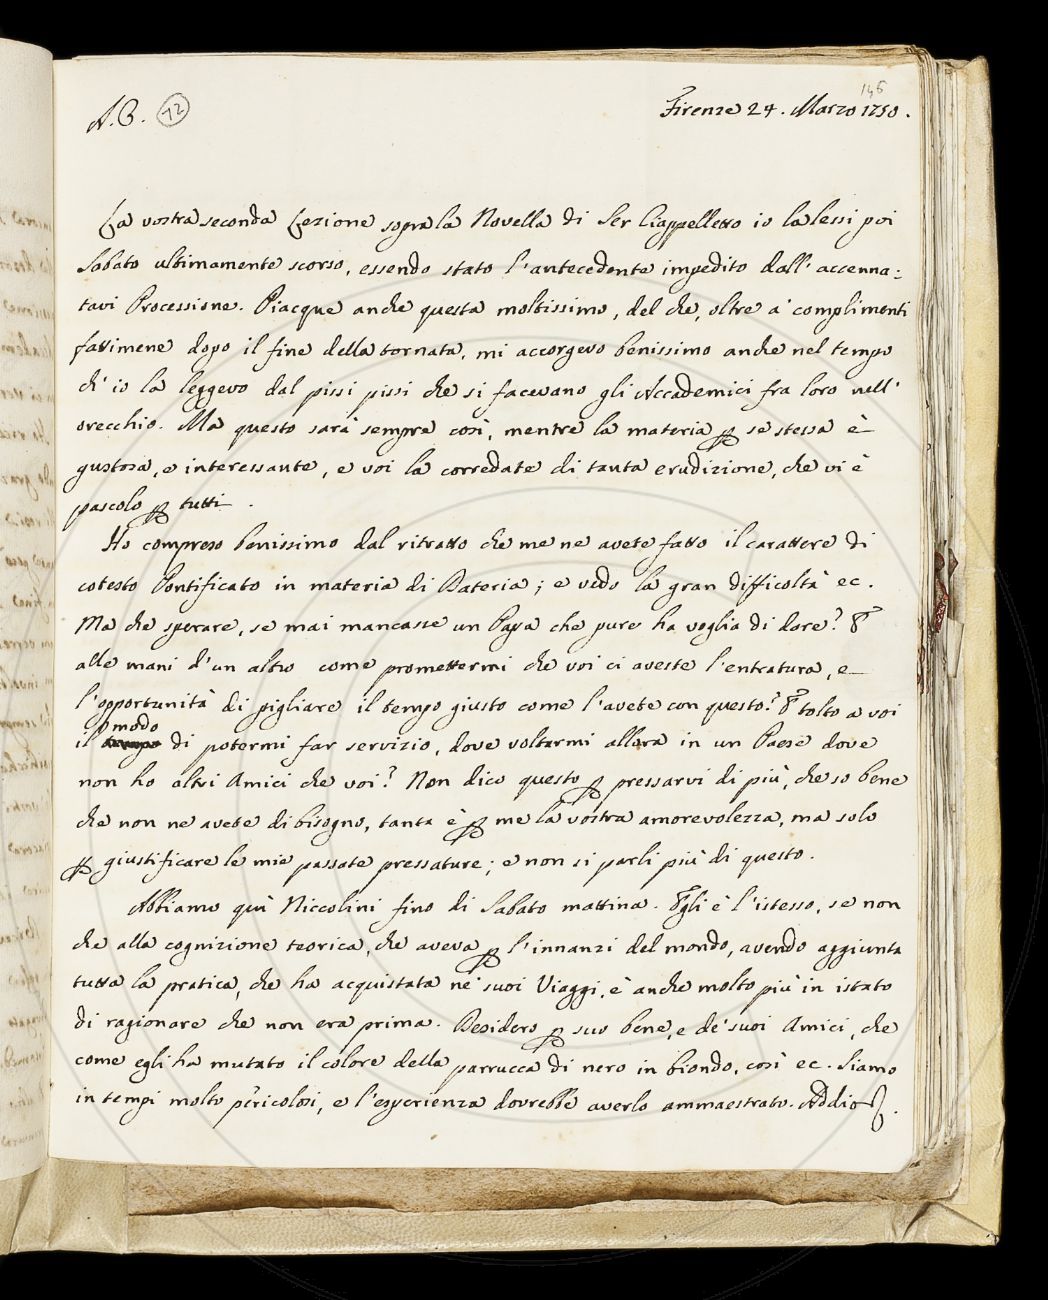 A.C. 72
146
Firenze 24. Marzo 1750.
La vostra seconda Lezione sopra la Novella di Ser Ciappelletto io la lessi poi
Sabato ultimamente scorso, essendo stato l'antecedente impedito dall'accenna=
tavi Processione. Piacque anche questa moltissimo, del che, oltre a' complimenti
fattimene dopo il fine della tornata, mi accorgevo benissimo anche nel tempo
ch'io la leggevo dal pissi pissi che si facevano gli Accademici fra loro nell'
orecchio. Ma questo sarà sempre così, mentre la materia ꝑ se stessa è
gustosa, e interessante, e voi la corredate di tanta erudizione, che vi è
pascolo ꝑ tutti.
Ho compreso benissimo dal ritratto che me ne avete fatto il carattere di
cotesto Pontificato in materia di Dateria; e vedo la gran difficoltà ec.
Ma che sperare, se mai mancasse un Papa che pure ha voglia di dare? E
alle mani d'un altro come promettermi che voi ci aveste l'entratura, e
l'opportunità di pigliare il tempo giusto come l'avete con questo? E tolto a voi
il modo di potermi far servizio, dove voltarmi allora in un Paese dove
non ho altri Amici che voi? Non dico questo ꝑ pressarvi di più, che so bene
che non ne avete di bisogno, tanta è ꝑ me la vostra amorevolezza, ma solo
ꝑ giustificare le mie passate pressature; e non si parli più di questo.
Abbiamo quì Niccolini fino di Sabato mattina. Egli è l'istesso, se non
che alla cognizione teorica, che aveva ꝑ l'innanzi del mondo, avendo aggiunta
tutta la pratica, che ha acquistata ne' suoi Viaggi, è anche molto più in istato
di ragionare che non era prima. Desidero ꝑ suo bene, e de' suoi Amici, che
come egli ha mutato il colore della parrucca di nero in biondo, così ec. Siamo
in tempi molto pericolosi, e l'esperienza dovrebbe averlo ammaestrato. Addio